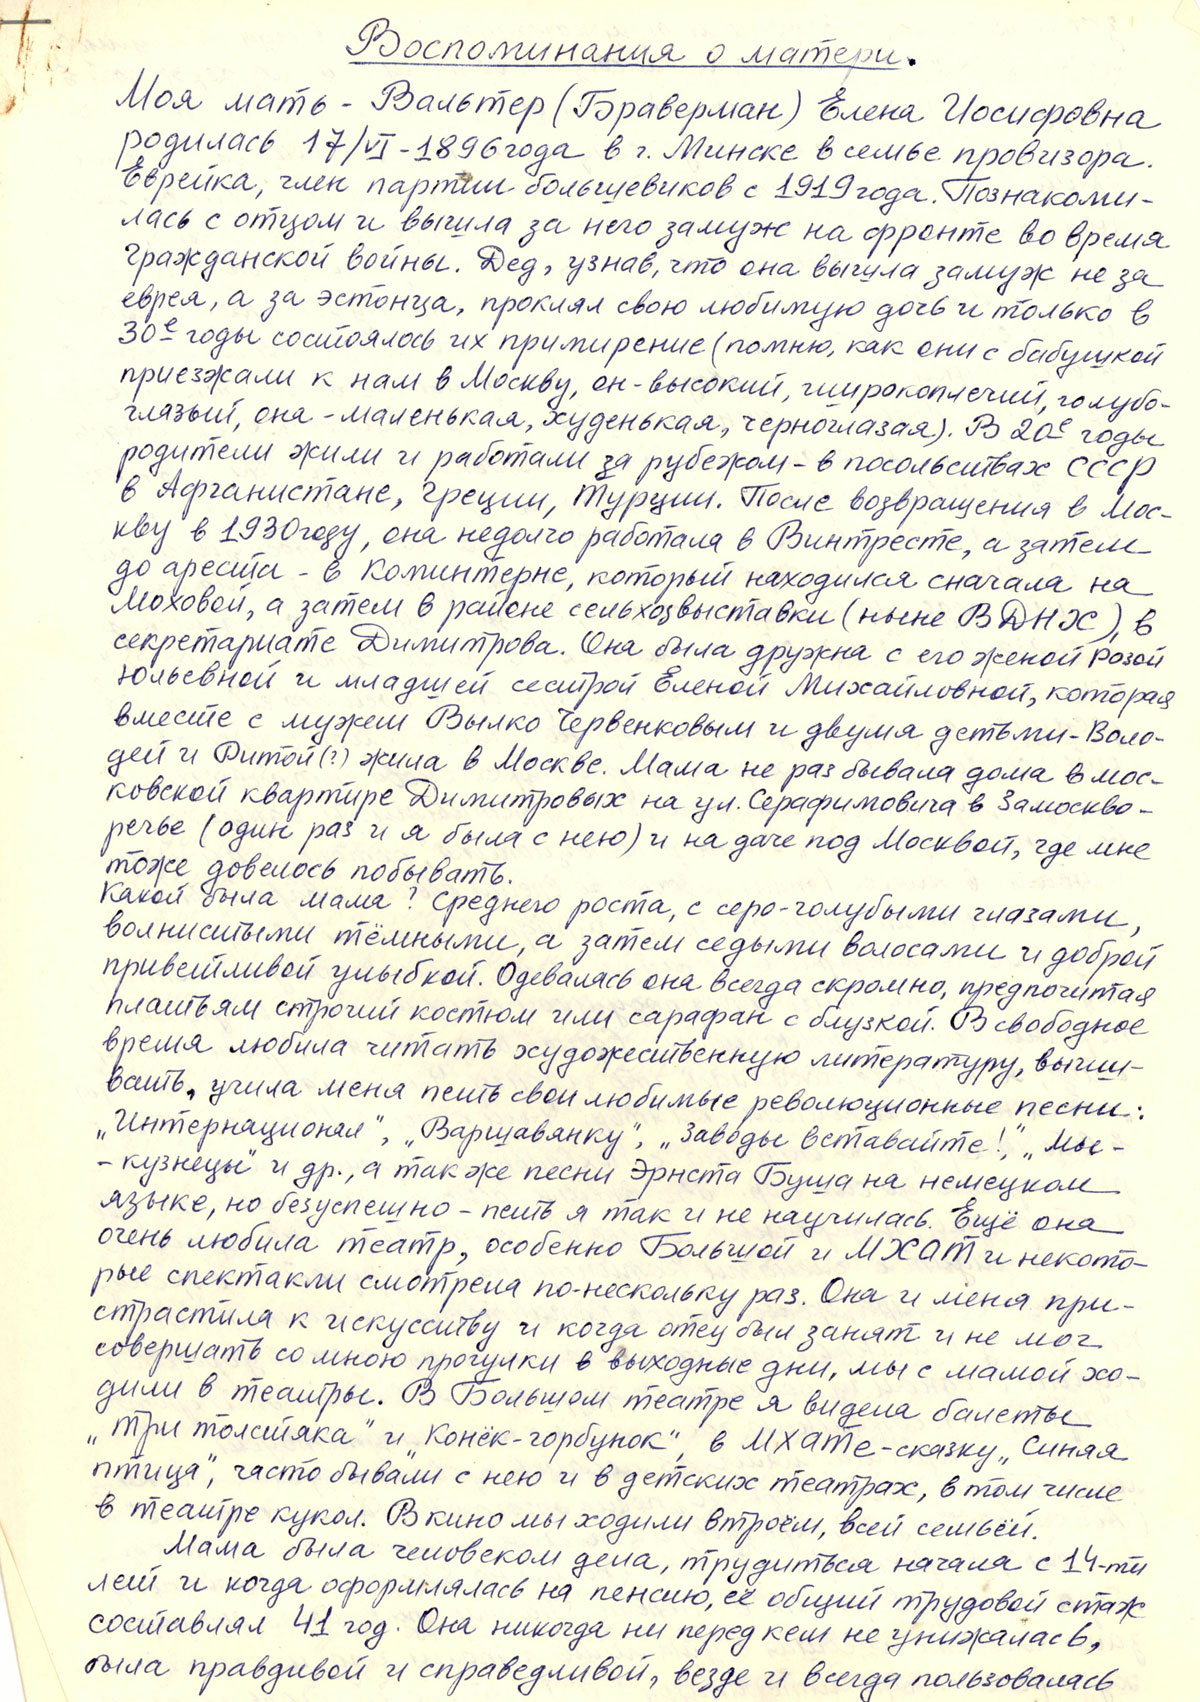 Воспоминания о матери.
Моя мать - Вальтер (Браверман) Елена Иосифовна
родилась 17/VI - 1896 года в г. Минске в семье провизора.
Еврейка, член партии большевиков с 1919 года. Познакоми-
лась с отцом и вышла за него замуж на фронте во время
Гражданской войны. Дед, узнав, что она вышла замуж не за
еврея, а за эстонца, проклял свою любимую дочь и только в
30е годы состоялось их примирение (помню, как они с бабушкой
приезжали к нам в Москву, он - высокий, широкоплечий, голубо-
глазый, она - маленькая, худенькая, черноглазая). В 20е годы
родители жили и работали за рубежом - в посольствах СССР
в Афганистане, Греции, Турции. После возвращения в Мос-
кву в 1930 году, она недолго работала в Винтресте, а затем
до ареста - в Коминтерне, который находился сначала на
Моховой, а затем в районе сельхозвыставки (ныне ВДНХ), в
секретариате Димитрова. Она была дружна с его женой Розой
Юльевной и младшей сестрой Еленой Михайловной, которая
вместе с мужем Вылко Червенковым и двумя детьми - Воло-
дей и Ритой (?) жила в Москве. Мама не раз бывала дома в мос-
ковской квартире Димитровых на ул. Серафимовича в Замоскво-
речье (один раз и я была с нею) и на даче под Москвой, где мне
тоже довелось побывать.
Какой была мама? Среднего роста, с серо-голубыми глазами,
волнистыми тёмными, а затем седыми волосами и доброй
приветливой улыбкой. Одевалась она всегда скромно, предпочитая
платьям строгий костюм или сарафан с блузкой. В свободное
время любила читать художественную литературу, выши-
вать, учила меня петь свои любимые революционные песни:
„Интернационал", „Варшавянку", „Заводы вставайте!", „Мы -
- кузнецы" и др., а также песни Эрнста Буша на немецком
языке, но безуспешно - петь я так и не научилась. Ещё она
очень любила театр, особенно Большой и МХАТ и некото-
рые спектакли смотрела по-нескольку раз. Она и меня при-
страстила к искусству и когда отец был занят и не мог
совершать со мною прогулки в выходные дни, мы с мамой хо-
дили в театры. В Большом театре я видела балеты
„Три толстяка" и „Конёк-горбунок", в МХАТе - сказку „Синяя
птица", часто бывали с нею и в детских театрах, в том числе
в театре кукол. В кино мы ходили втроём, всей семьёй.
Мама была человеком дела, трудиться начала с 14-ти
лет и когда оформлялась на пенсию, её общий трудовой стаж
составлял 41 год. Она никогда ни перед кем не унижалась,
была правдивой и справедливой, везде и всегда пользовалась